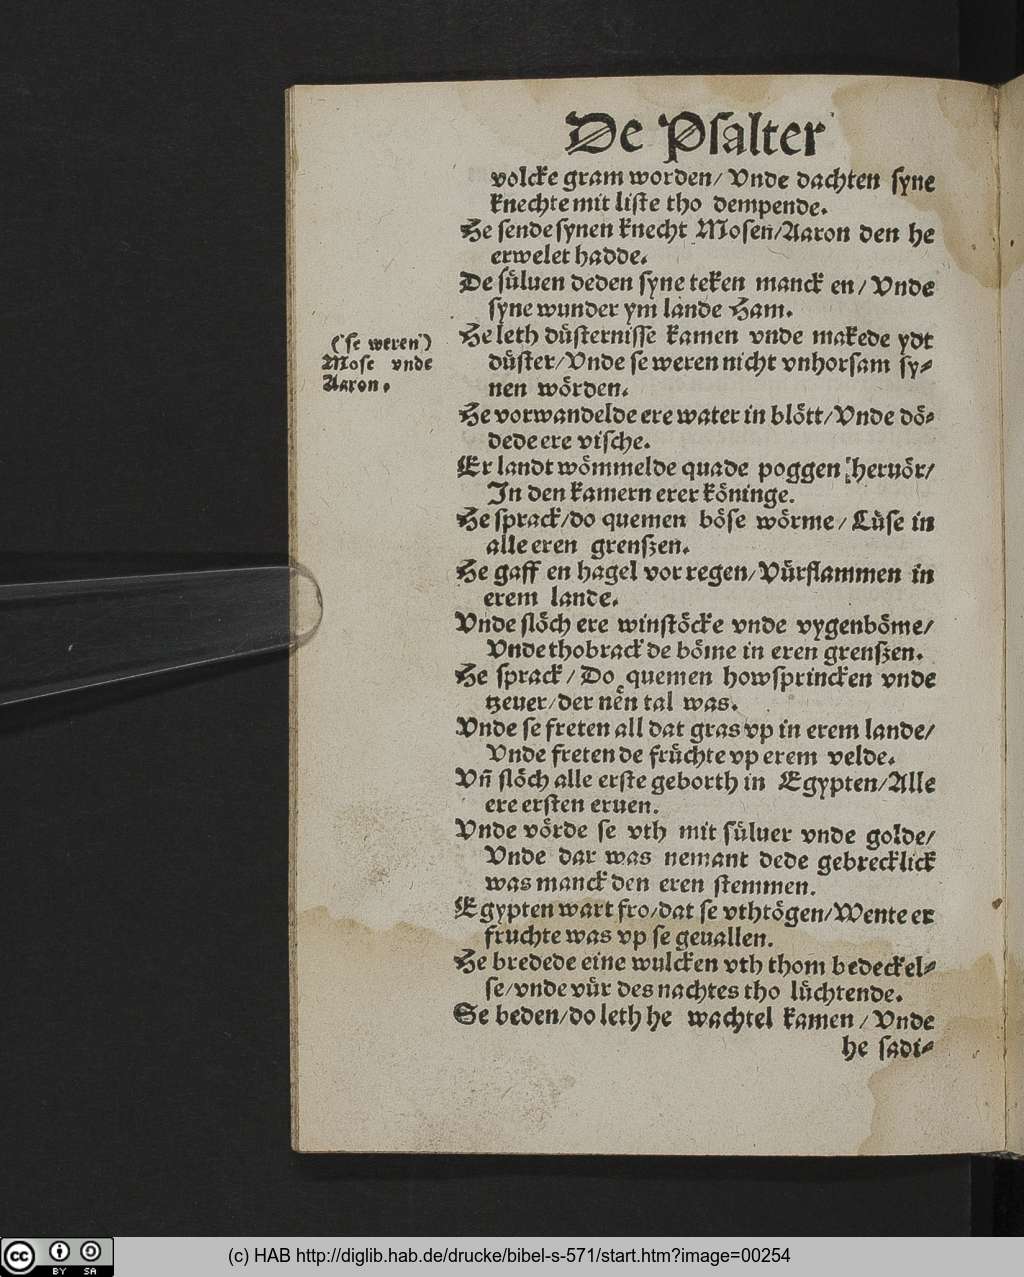 De Psalter
volcke gram worden/ Vnde dachten syne
knechte mit liste tho dempende.
He sende synen knecht Mosen/Aaron den he
erwelet hadde.
De sůluen deden syne teken manck en/ Vnde
syne wunder ym lande Ham.
He leth důsternisse kamen vnde makede ydt
důster/Vnde se weren nicht vnhorsam sy⸗
nen wǒrden.
(se weren)
Mose vnde
Aaron.
He vorwandelde ere water in blǒtt/Vnde dǒ⸗
dede ere vische.
Er landt wǒmmelde quade poggen heruǒr/
In den kamern erer kǒninge.
He sprack/do quemen bǒse wǒrme/ Lůse in
alle eren grenszen.
He gaff en hagel vor regen/Vůrflammen in
erem lande.
Vnde slǒch ere winstǒcke vnde vygenbǒme/
Vnde thobrack de bǒme in eren grenszen.
He sprack/ Do quemen howsprincken vnde
tzeuer/der nen tal was.
Vnde se freten all dat gras vp in erem lande/
Vnde freten de frůchte vp erem velde.
Vn̄ slǒch alle erste geborth in Egypten/Alle
ere ersten eruen.
Vnde vǒrde se vth mit sůluer vnde golde/
Vnde dar was nemant dede gebrecklick
was manck den eren stemmen.
Egypten wart fro/dat se vthtǒgen/Wente er
fruchte was vp se geuallen.
He bredede eine wulcken vth thom bedeckel⸗
se/vnde vůr des nachtes tho lůchtende.
Se beden/do leth he wachtel kamen/ Vnde
he sadi⸗
cc BY SA
(c) HAB http://diglib.hab.de/drucke/bibel-s-571/start.htm?image=00254